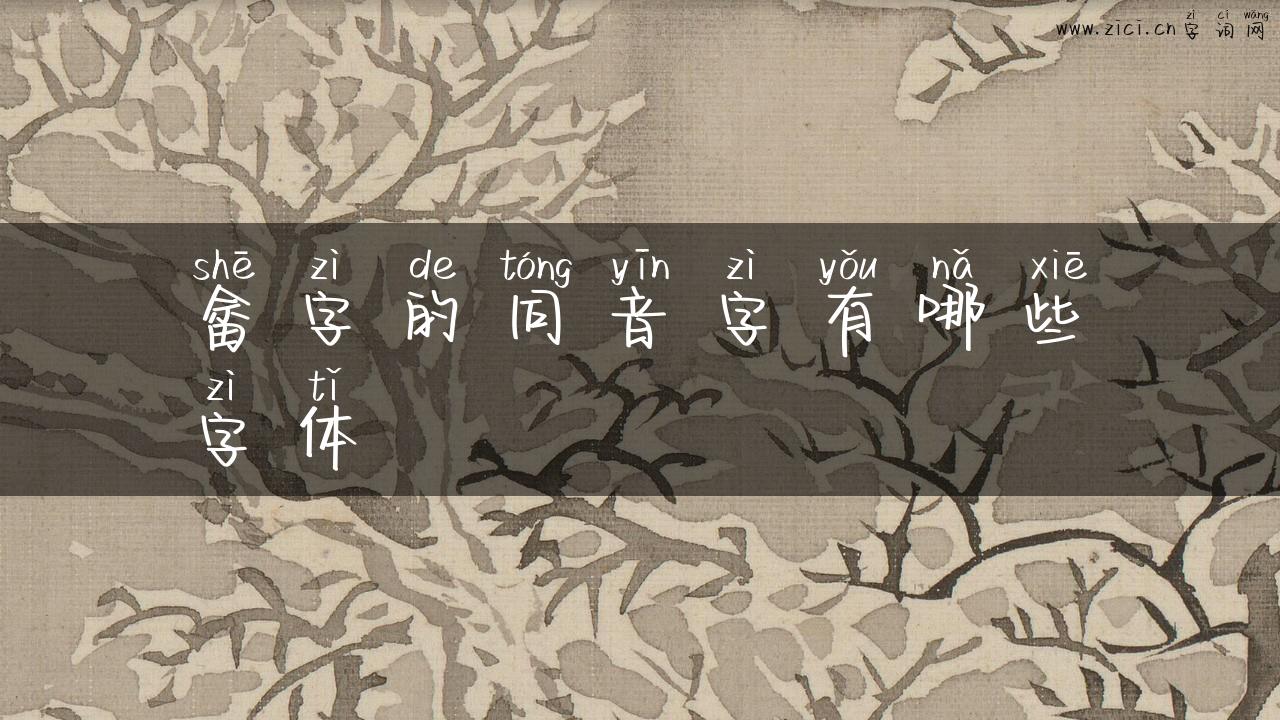 zì cí wǎng
www.zici.cn字词网
shē zì de tóng yīn zì yǒu nǎ xiē
畲字的同音字有哪些
zì tǐ
字体